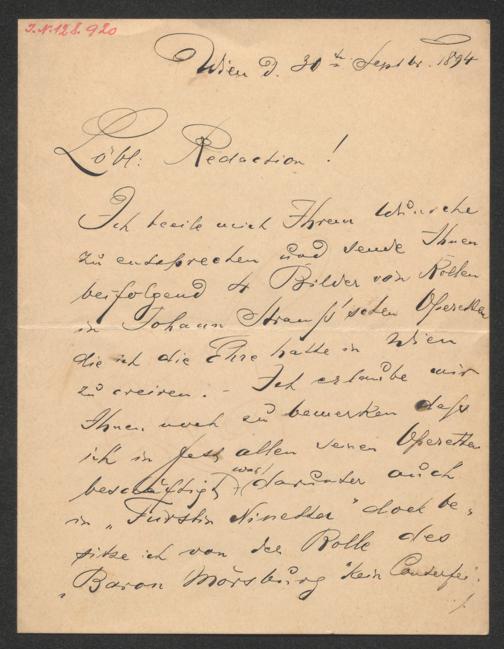 J.N. 128.920
Wien d. 30ten Septbr. 1894
Löbl: Redaction!
Ich beeile mich Ihrem Wunsche
zu entsprechen und sende Ihnen
beifolgend 4 Bilder von Rollen
in Johann Strauß'schen Operetten
die ich die Ehre hatte in Wien
zu creiren. – Ich erlaube mir
Ihnen noch zu bemerken daß
ich in fast allen seinen Operetten
beschäftigt (war) darunter auch
in „Fürstin Ninetta" doch be-
sitze ich von der Rolle des
„Baron Mörsburg" kein Conterfei.